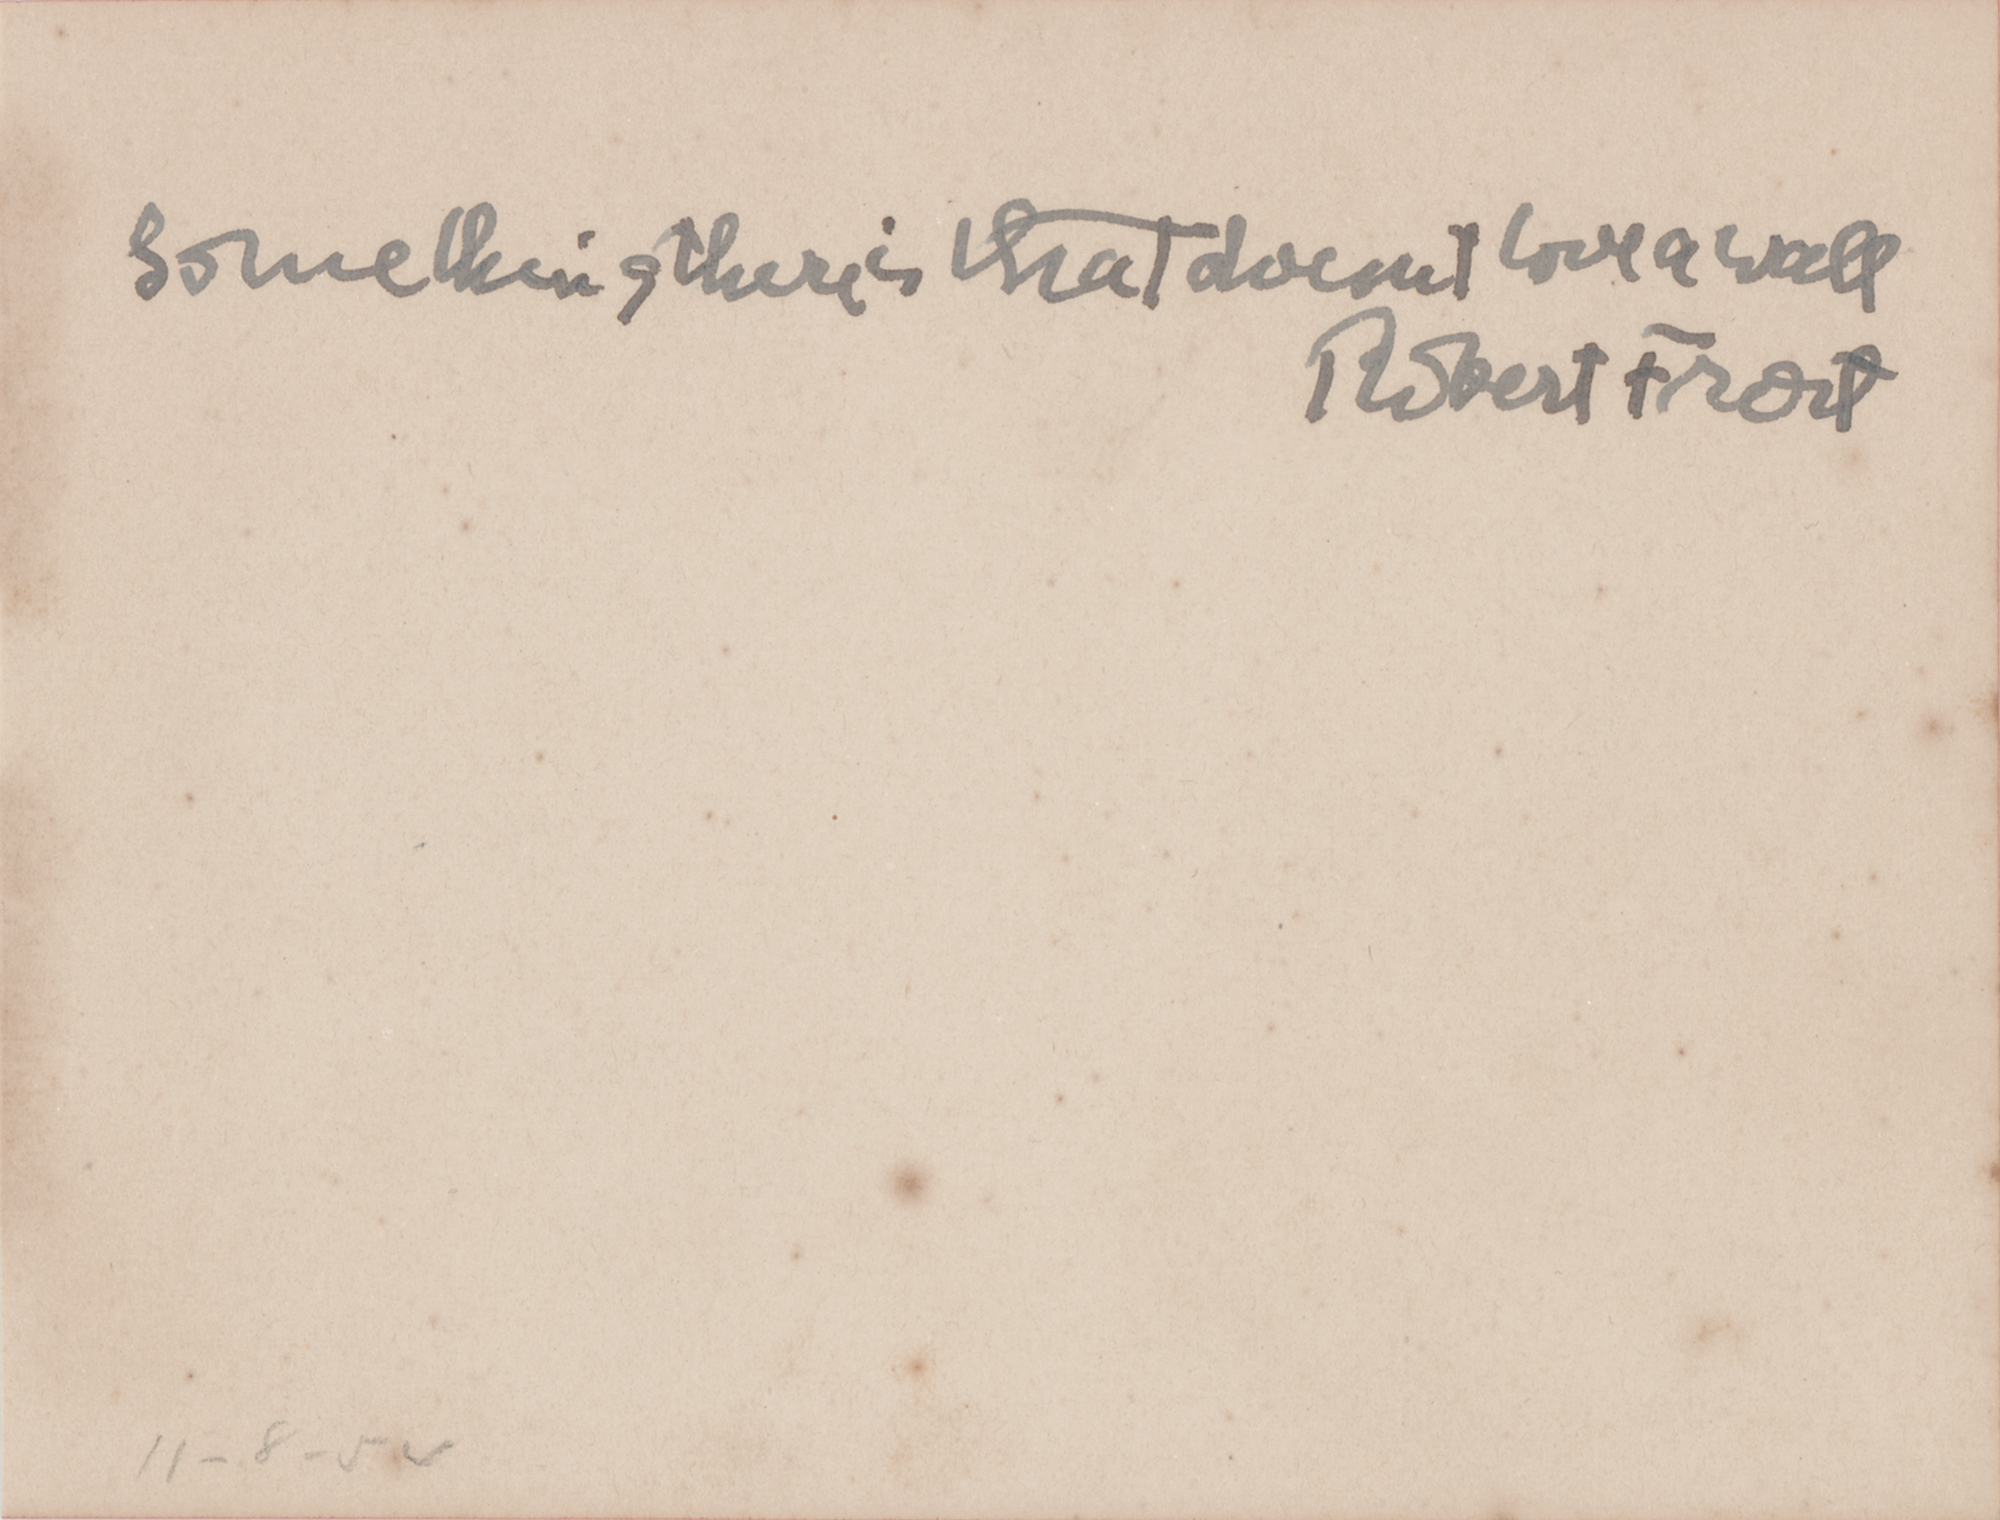 Something there is that doesnt love a wall
Robert Frost
11-8-52